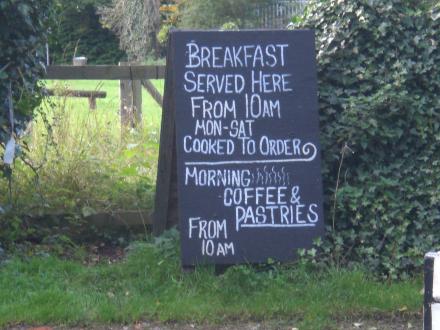 BREAKFAST
SERVED HERE
FROM 10AM
MON-SAT
COOKED TO ORDER
MORNING
COFFEE &
PASTRIES
FROM
10 AM